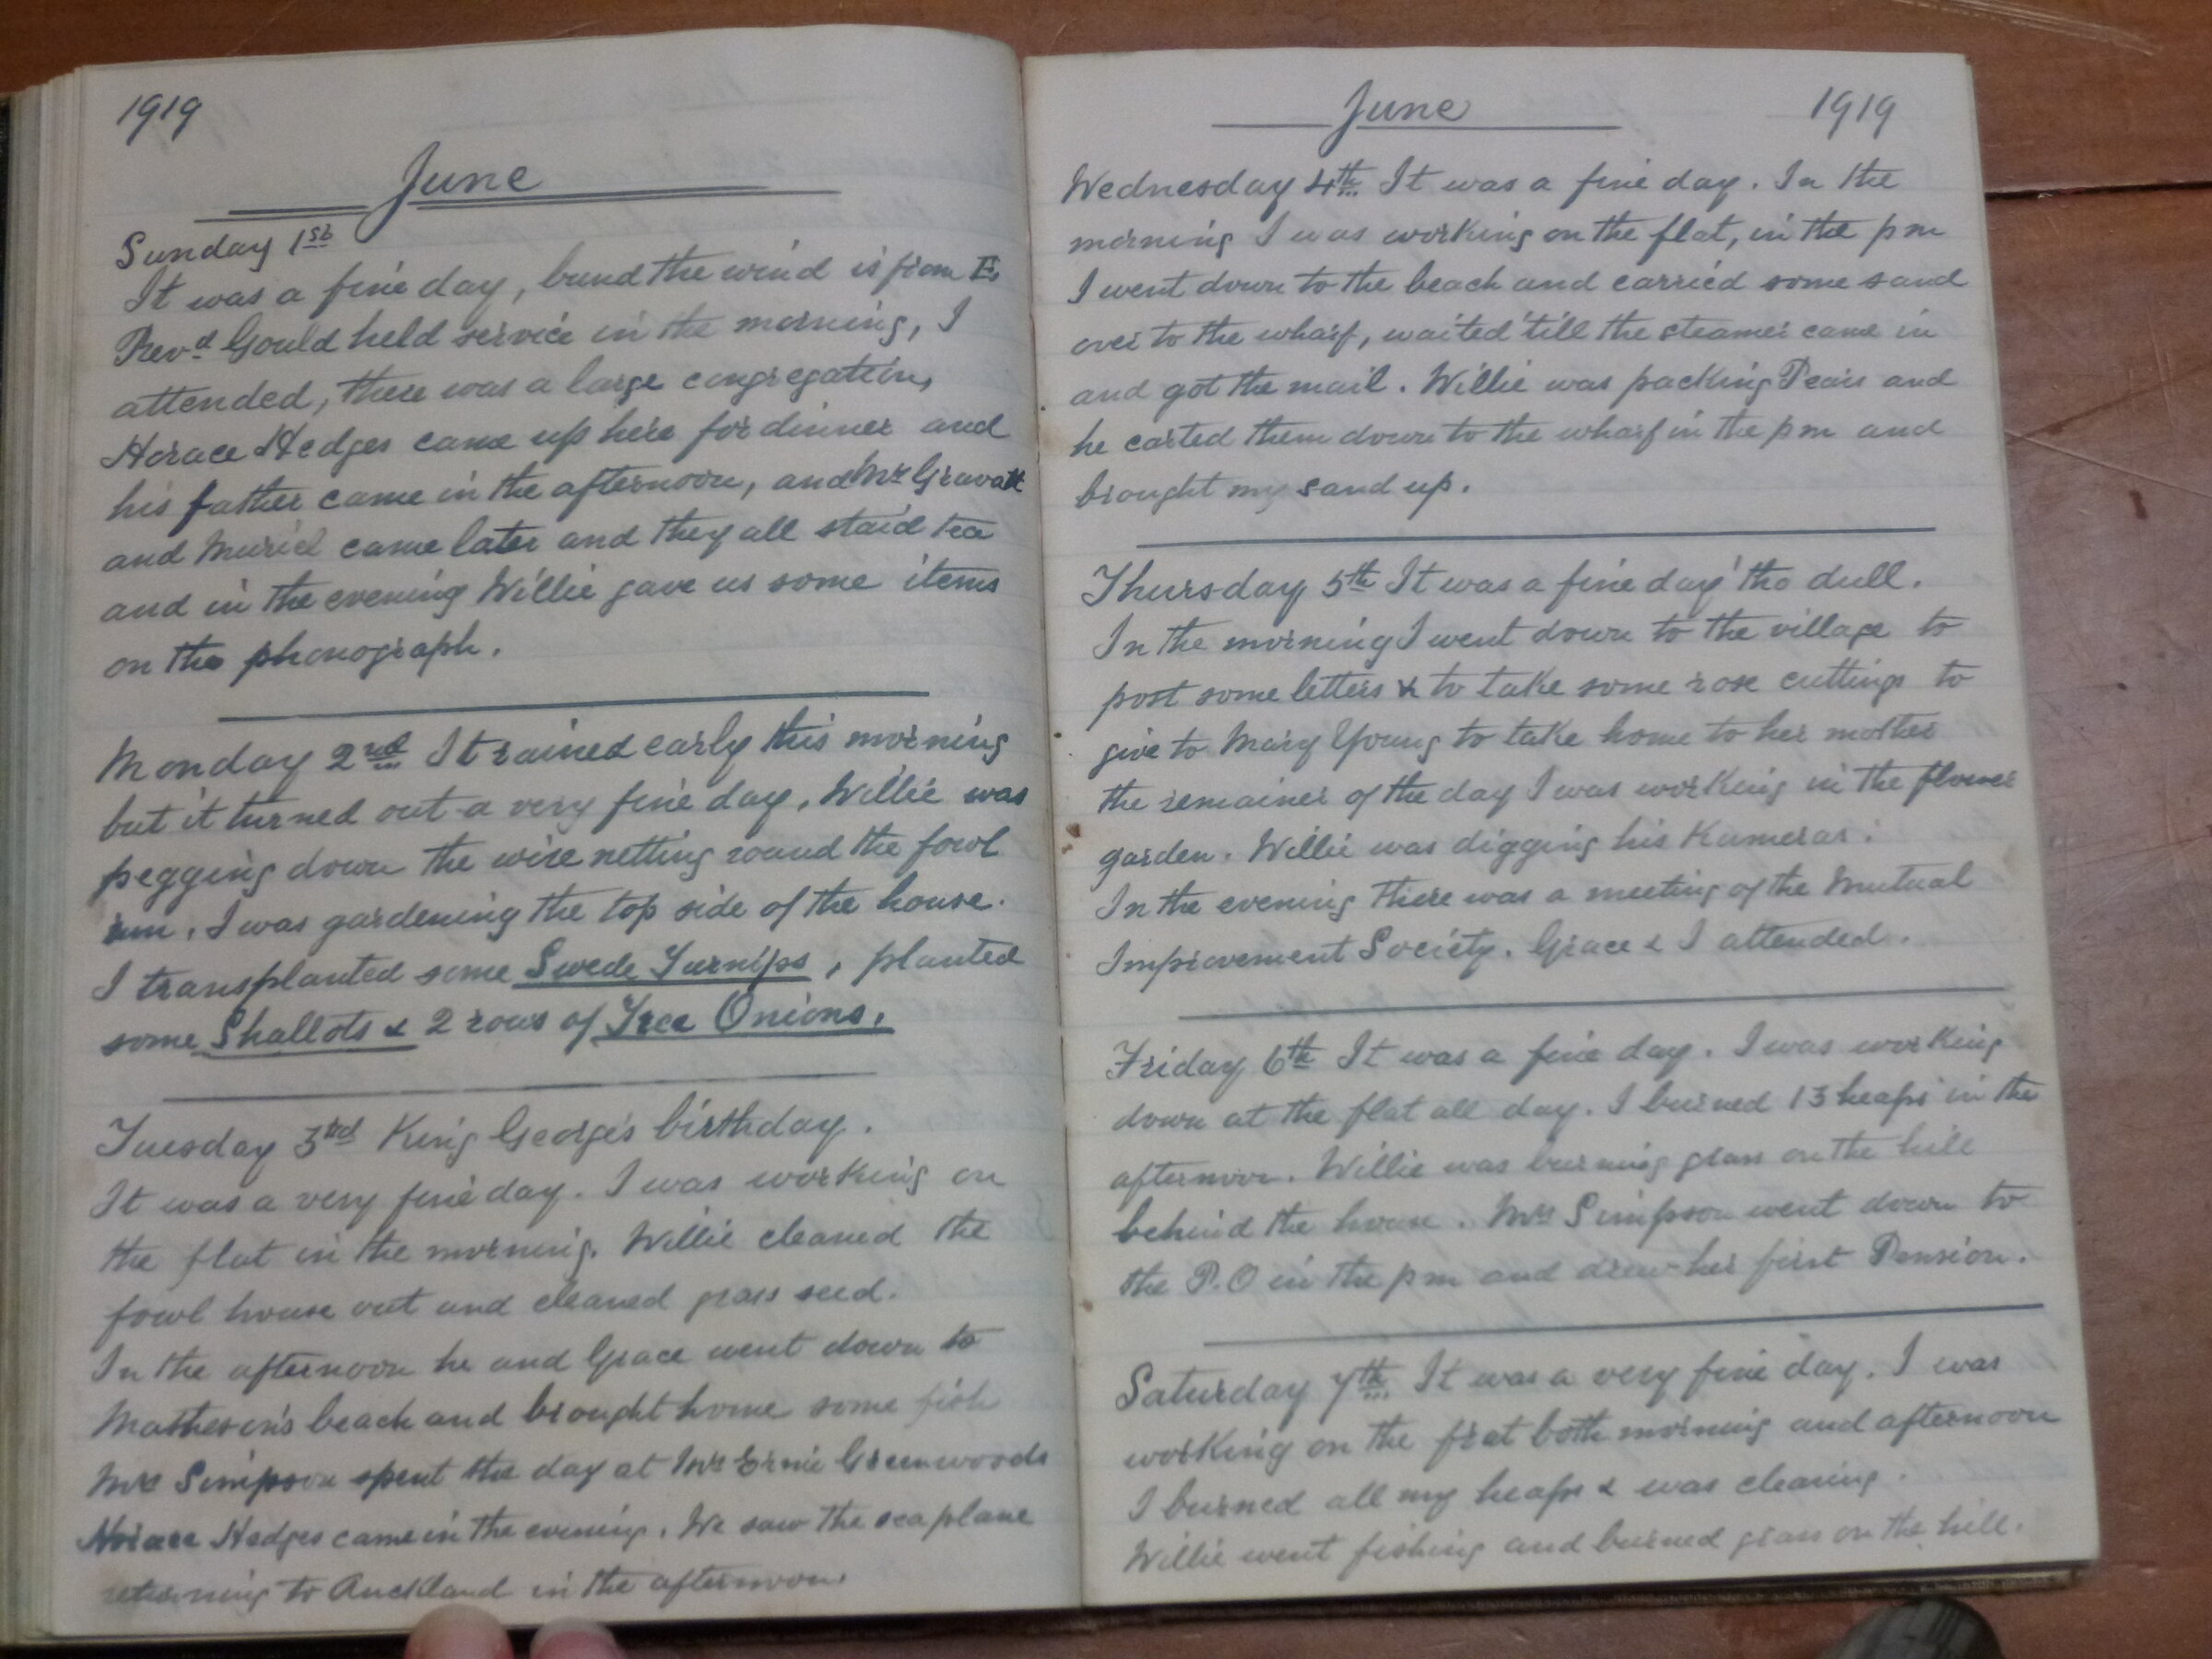 1919
June
Sunday 1st
It was a fine day, but the wind is from E.
Revd Gould held service in the morning, I
attended, there was a large congregation,
Horace Hedges came up here for dinner and
his father came in the afternoon, and Mr Gravatt
and Muriel came later and they all staid tea
and in the evening Willie gave us some items
on the phonograph.
Monday 2nd It rained early this morning
but it turned out a very fine day, Willie was
pegging down the wire netting round the fowl
run. I was gardening the top side of the house.
I transplanted some Swede Turnips, planted
some Shallots & 2 rows of Tree Onions.
Tuesday 3rd King George's birthday.
It was a very fine day. I was working on
the flat in the morning. Willie cleaned the
fowl house out and cleaned grass seed.
In the afternoon he and Grace went down to
Matheson's beach and brought home some fish
Mrs Simpson spent the day at Mrs Ernie Greenwoods
Horace Hedges came in the evening. We saw the seaplane
returning to Auckland in the afternoon.
June 1919
Wednesday 4th It was a fine day. In the
morning I was working on the flat, in the pm
I went down to the beach and carried some sand
over to the wharf, waited 'till the steamer came in
and got the mail. Willie was packing Pears and
he carted them down to the wharf in the pm and
brought my sand up.
Thursday 5th It was a fine day 'tho dull.
In the morning I went down to the village to
post some letters & to take some rose cuttings to
give to Mary Young to take home to her mother
the remainer of the day I was working in the flower
garden. Willie was digging his Kumeras.
In the evening there was a meeting of the Mutual
Improvement Society. Grace & I attended.
Friday 6th It was a fine day. I was working
down at the flat all day. I burned 13 heaps in the
afternoon. Willie was burning grass on the hill
behind the house. Mrs Simpson went down to
the P.O in the pm and drew her first Pension.
Saturday 7th It was a very fine day. I was
working on the flat both morning and afternoon
I burned all my heaps & was clearing.
Willie went fishing and burned grass on the hill.